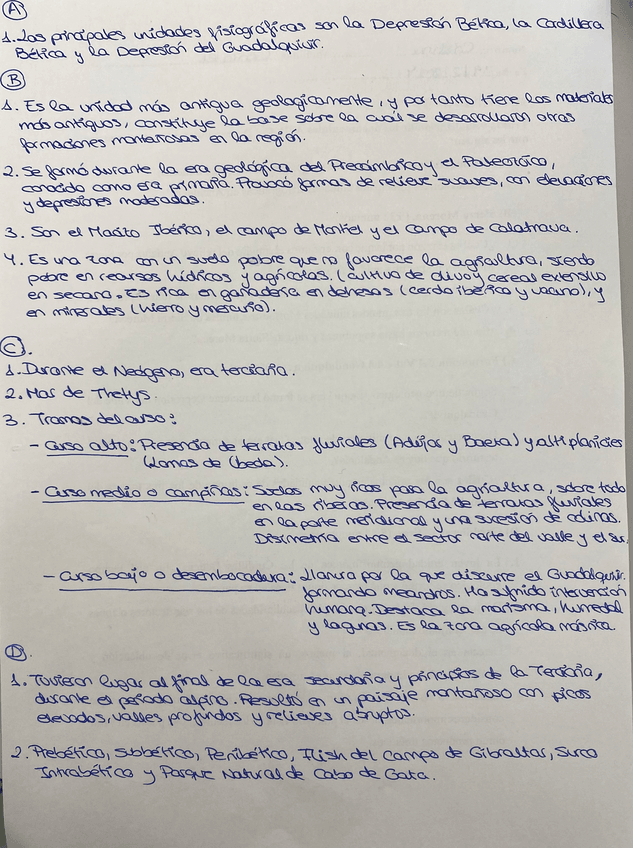 A
1. Las principales unidades fisiográficas son la Depresión Bética, la Cordillera
Bética y la Depresión del Guadalquivir.
B
1. Es la unidad más antigua geologicamente, y por tanto tiene los materiales
más antiguos, constituye la base sobre la cuál se desarrollaron otras
formaciones montañosas en la región.
2. Se formó durante la era geológica del Precámbrico y el Paleozoico,
conocido como era primaria. Provocó formas de relieve suaves, con elevaciones
y depresiones moderadas.
3. Son el Macizo Ibérico, el campo de Montiel y el Campo de Calatrava.
4. Es una zona con un suelo pobre que no favorece la agricultura, siendo
pobre en recursos hídricos y agrícolas. (cultivo de olivo y cereal extensivo
en secano. Es rica en ganadería en dehesas (cerdo ibérico y vacuno), y
en minerales (hierro y mercurio).
C.
1. Durante el Neógeno, era terciaria.
2. Mar de Thetys.
3. Tramos del curso:
- Curso alto: Presencia de terrazas fluviales (Andújar y Baeza) y altiplanicies
(Lomas de Úbeda).
- Curso medio o campiñas: Suelos muy ricos para la agricultura, sobre todo
en las riberas. Presencia de terrazas fluviales
en la parte meridional y una sucesión de colinas.
Disimetría entre el sector norte del valle y el sur.
- Curso bajo o desembocadura: Llanura por la que discurre el Guadalquivir.
formando meandros. Ha sufrido intervención
humana. Destaca la marisma, humedal
y lagunas. Es la zona agrícola más rica.
D.
1. Tuvieron lugar al final de la era secundaria y principios de la Terciaria,
durante el periodo alpino. Resultó en un paisaje montañoso con picos
elevados, valles profundos y relieves abruptos.
2. Prebético, Subbético, Penibético, Flish del Campo de Gibraltar, Surco
Intrabético y Parque Natural de Cabo de Gata.